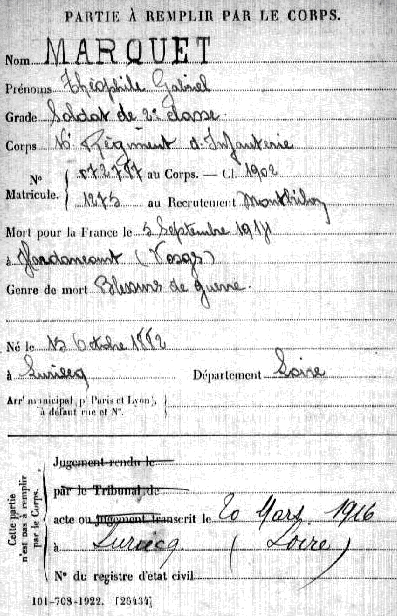 PARTIE À REMPLIR PAR LE CORPS.
Nom MARQUET
Prénoms Théophile Gabriel
Grade Soldat de 2e classe
Corps 16e Régiment d'Infanterie
No Matricule. au Corps. — Cl. 1902
1273 au Recrutement Montbrison
Mort pour la France le 5 Septembre 1914
à (Vosges)
Genre de mort Blessures de guerre
Né le Octobre 1882
à Luriecq Département Loire
Arrt municipal (pr Paris et Lyon),
à défaut rue et No.
Cette partie n'est pas à remplir par le Corps.
Jugement rendu le
par le Tribunal de
acte ou jugement transcrit le 20 Mars 1916
à Luriecq (Loire)
No du registre d'état civil
101-708-1922. [26434]